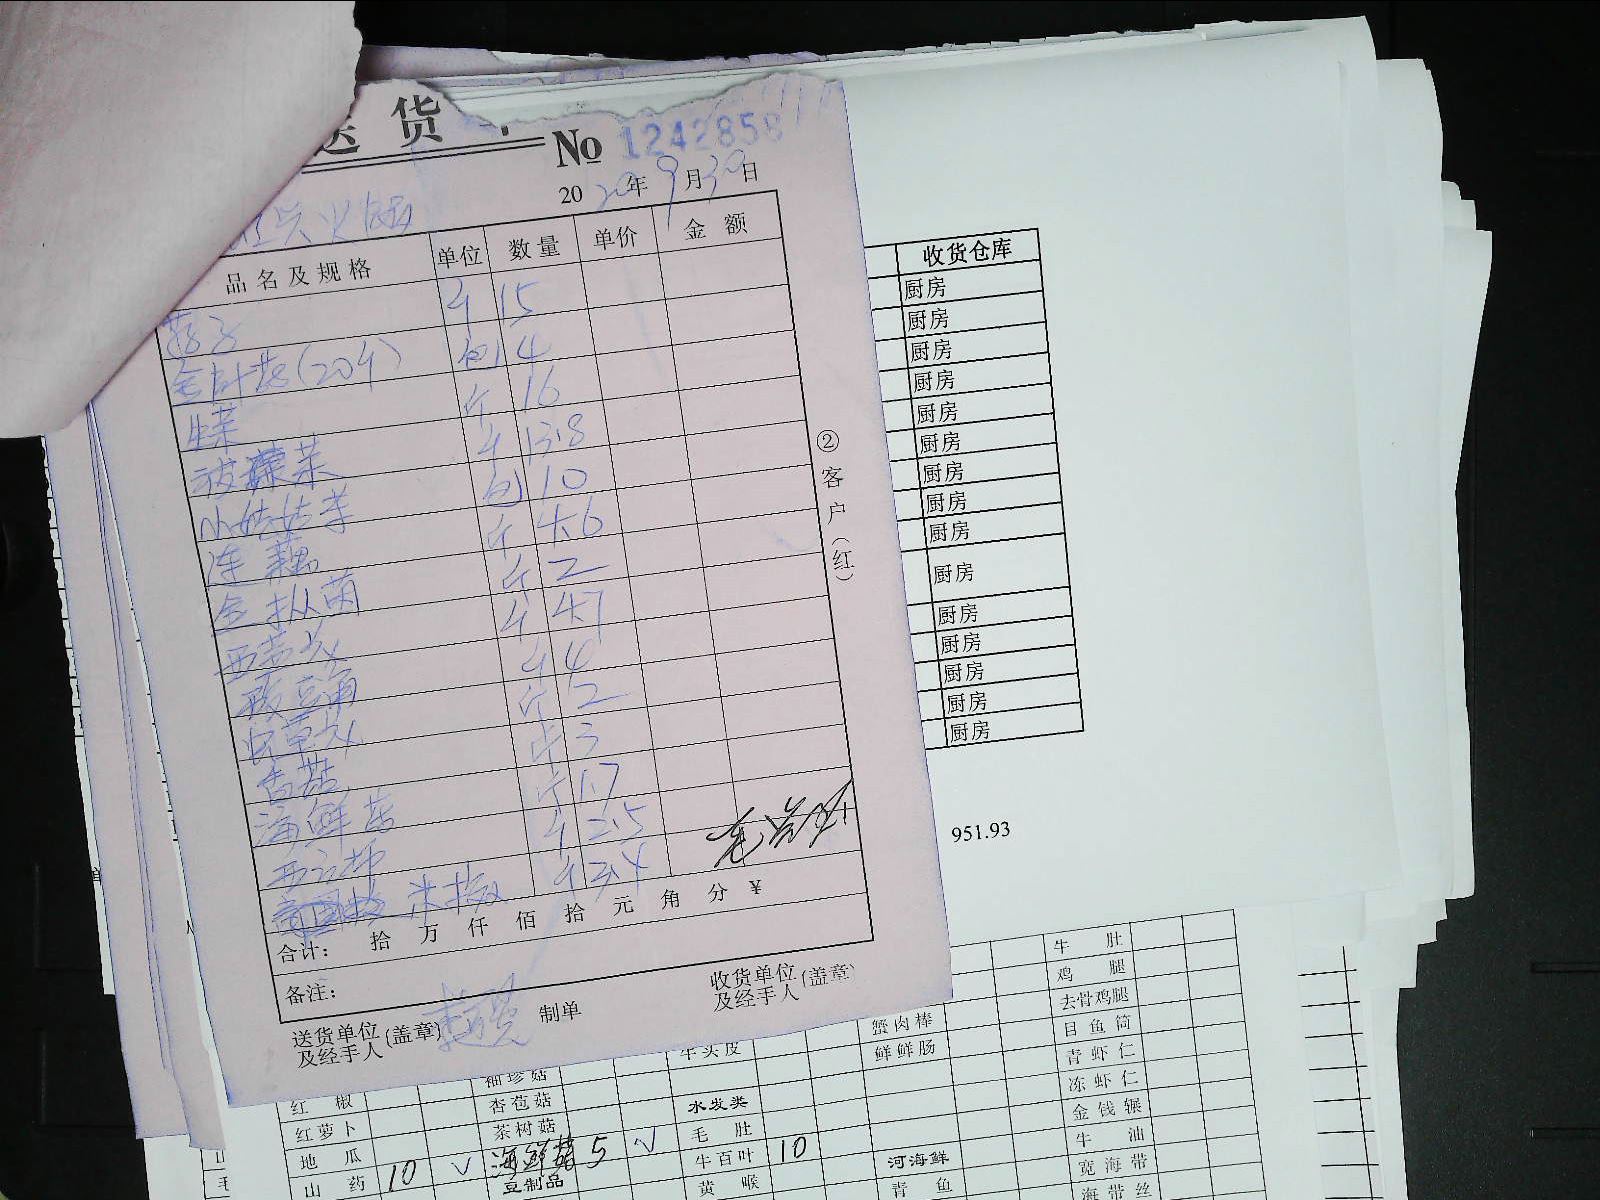 送 货
No 1242858
2020年9月30日
品名及规格 单位 数量 单价 金额
斤 15
金针菇(20斤) 包 4
生菜 斤 16
菠菜 斤 13.8
包 10
连藕 斤 4.6
斤 2
西兰花 斤 4.7
酸豆角 斤 4
斤 2
香菇 斤 3
海鲜菇 斤 1.7
西红柿 斤 2.5
米椒 斤 3.4
合计: 拾 万 仟 佰 拾 元 角 分 ¥
备注:
送货单位(盖章)
及经手人
制单
收货单位(盖章)
及经手人
②客户(红)
收货仓库
厨房
厨房
厨房
厨房
厨房
厨房
厨房
厨房
厨房
厨房
厨房
厨房
厨房
厨房
厨房
951.93
牛肚
鸡腿
蟹肉棒 去骨鸡腿
袖珍菇 牛头皮 鲜鲜肠 目鱼筒
红椒 杏苞菇 水发类 青虾仁
红萝卜 茶树菇 毛肚 冻虾仁
地瓜 海鲜菇 5 √ 牛百叶 10 河海鲜 金钱辗
山药 10 √ 豆制品 黄喉 青鱼 牛油
宽海带
海带丝